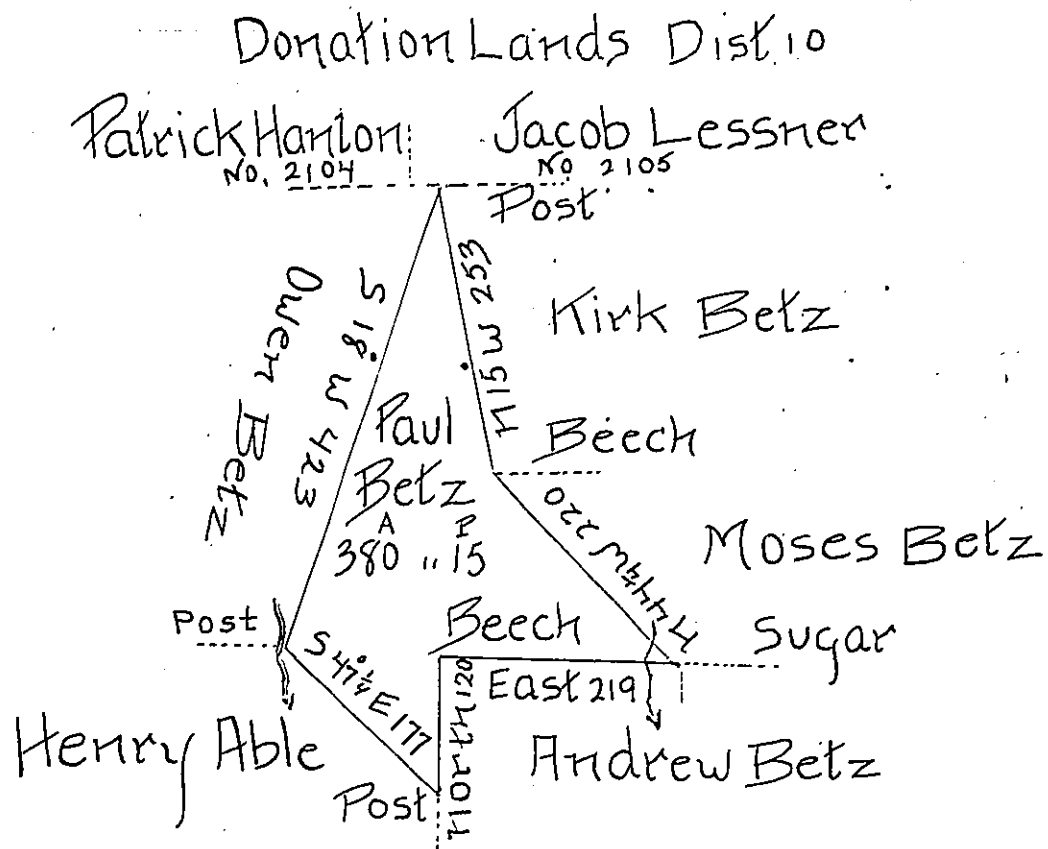 Donation Lands Dist. 10
Patrick Hanlon
No. 2104
Jacob Lessner
No 2105
Post
S 18° W 423
Owen Betz
N 15 W 253
Kirk Betz
Paul
Betz
A P
380 " 15
Beech
N 44¼ W 220
Moses Betz
Post
Beech
Sugar
S 47¼° E 177
North 120
East 219
Henry Able
Andrew Betz
Post